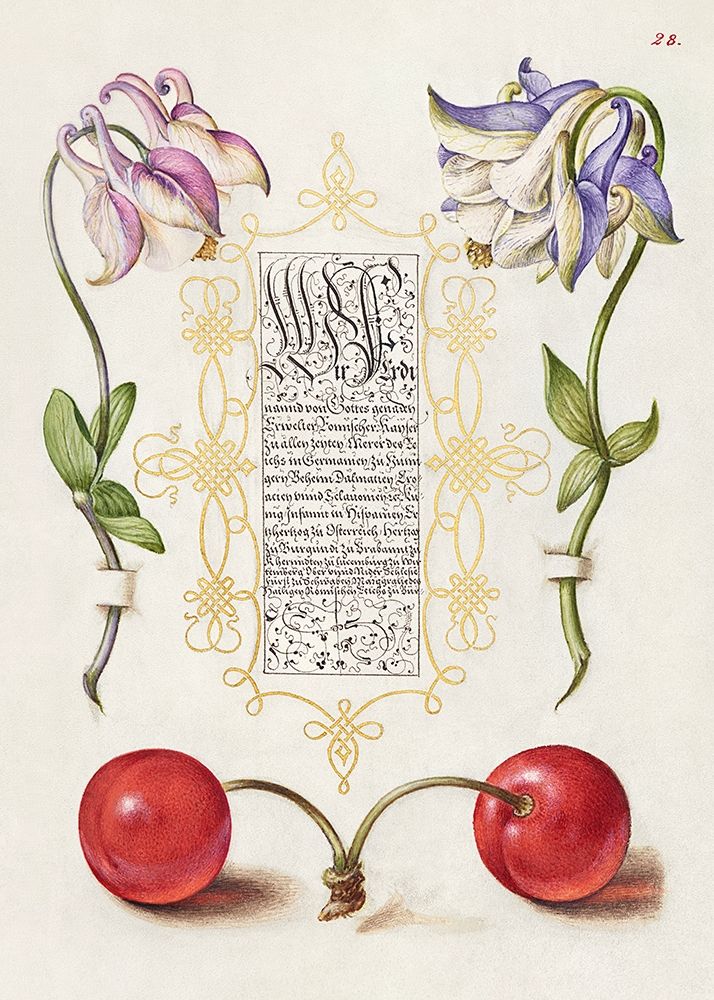 28.
Wir Ferdi
nannd von Gottes genaden
Erwelter Romischer Kayser
zu allen zeyten Merer des Re
ichs in Germanien, zu Hunn
gern Beheim Dalmatien Cro
acien vnnd Sclauonien zc. Ku
nig Infannt in Hispanien Er
tzhertzog zu Osterreich Hertzog
zu Burgundi zu Brabannt zu
zu Lucemburg zu Wir
tenberg Ober vnnd Nider Schlesie
Fürst zu Schwaben Marggraue des
Hailigen Römischen Reichs zu Bur